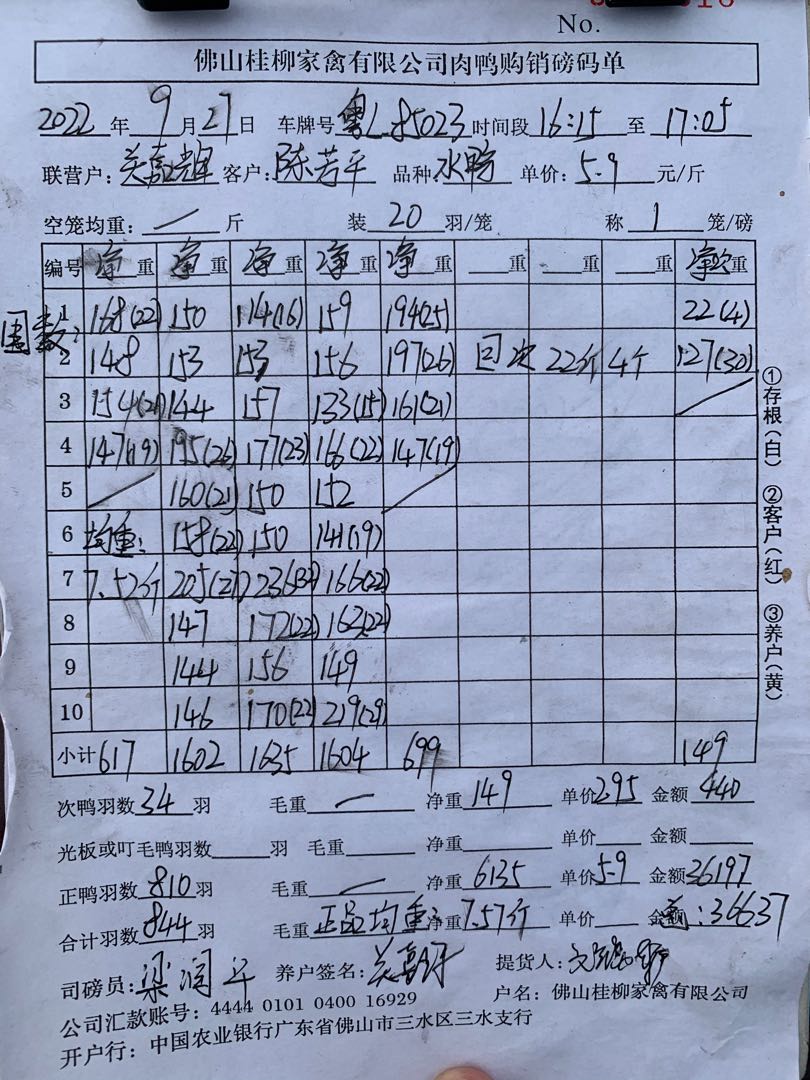 No.
佛山桂柳家禽有限公司肉鸭购销磅码单
2022 年 9 月 27 日 车牌号 粤L85023 时间段 16:15 至 17:05
联营户: 关嘉辉 客户: 陈芳平 品种 水鸭 单价: 5.9 元/斤
空笼均重: / 斤 装 20 羽/笼 称 1 笼/磅
编号 净重 净重 净重 净重 净重 重 重 重 净次重
围数:
1 168(22) 150 114(16) 159 194(25) 22(4)
2 148 153 153 156 197(26) 回次 22斤 4个 127(30)
3 154(21) 144 157 133(15) 161(21) /
4 147(19) 195(26) 177(23) 166(22) 147(19)
5 / 160(21) 150 152 /
6 均重: 158(22) 150 141(19)
7 7.52斤 205(27) 236(32) 166(22)
8 147 172(22) 162(22)
9 144 156 149
10 146 170(22) 219(29)
小计 617 1602 1635 1604 699 149
次鸭羽数 34 羽 毛重 / 净重 149 单价 2.95 金额 440
光板或叮毛鸭羽数 羽 毛重 净重 单价 金额
正鸭羽数 810 羽 毛重 / 净重 6135 单价 5.9 金额 36197
合计羽数 844 羽 毛重 正品均重: 净重 7.57斤 单价 金额 : 36637
司磅员: 梁润平 养户签名: 提货人:
公司汇款账号: 4444 0101 0400 16929 户名: 佛山桂柳家禽有限公司
开户行: 中国农业银行广东省佛山市三水区三水支行
①存根(白) ②客户(红) ③养户(黄)